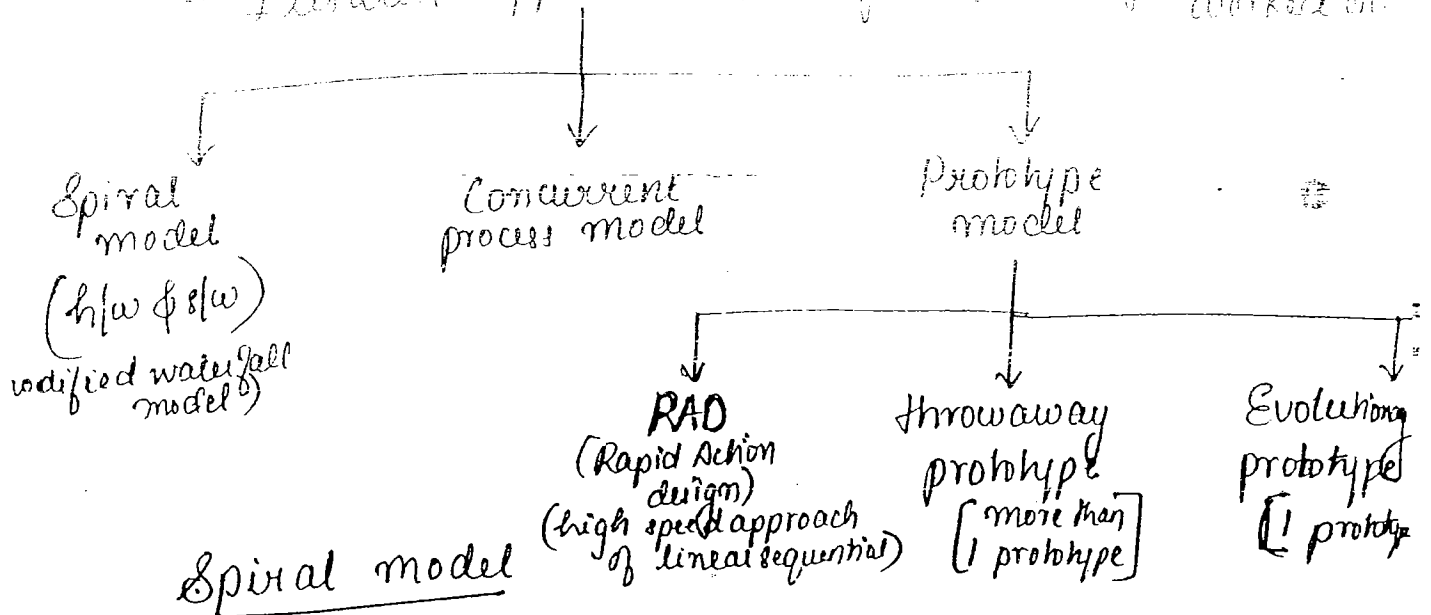 Spiral
model
(h/w & s/w)
modified waterfall
model)
Concurrent
process model
Prototype
model
RAD
(Rapid Action
design)
(high speed approach
of linear sequential)
throwaway
prototype
[more than
1 prototype]
Evolutionary
prototype
[1 prototype
Spiral model